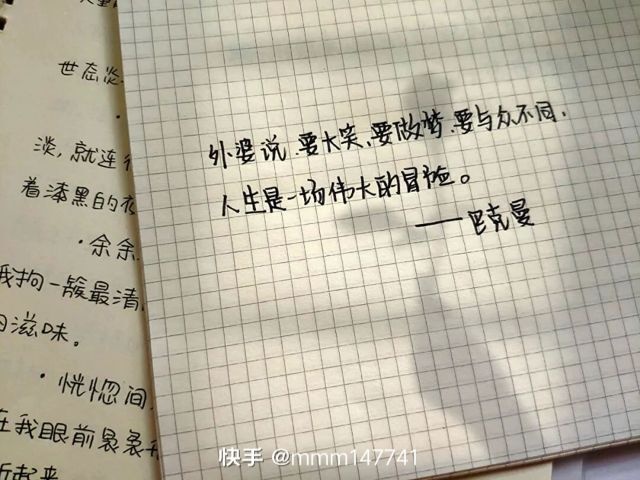 世态炎
淡,就连
着漆黑的衣
·余余
我掬一簇最清
滋味。
·恍惚间
在我眼前袅袅升
外婆说.要大笑、要做梦.要与众不同.
人生是一场伟大的冒险。
——巴克曼
快手 @mmm147741